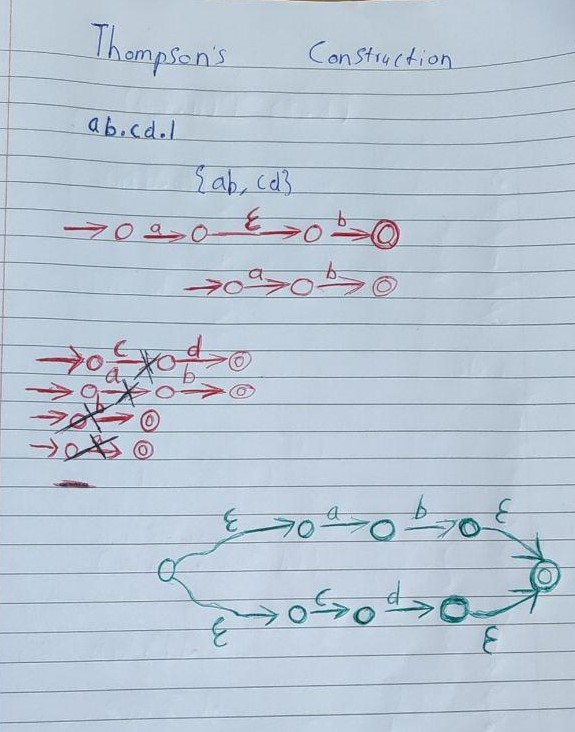 Thompson's Construction
ab.cd.|
{ab, cd}
a ε b
a b
c d
a b
b
a
ε a b ε
ε c d ε